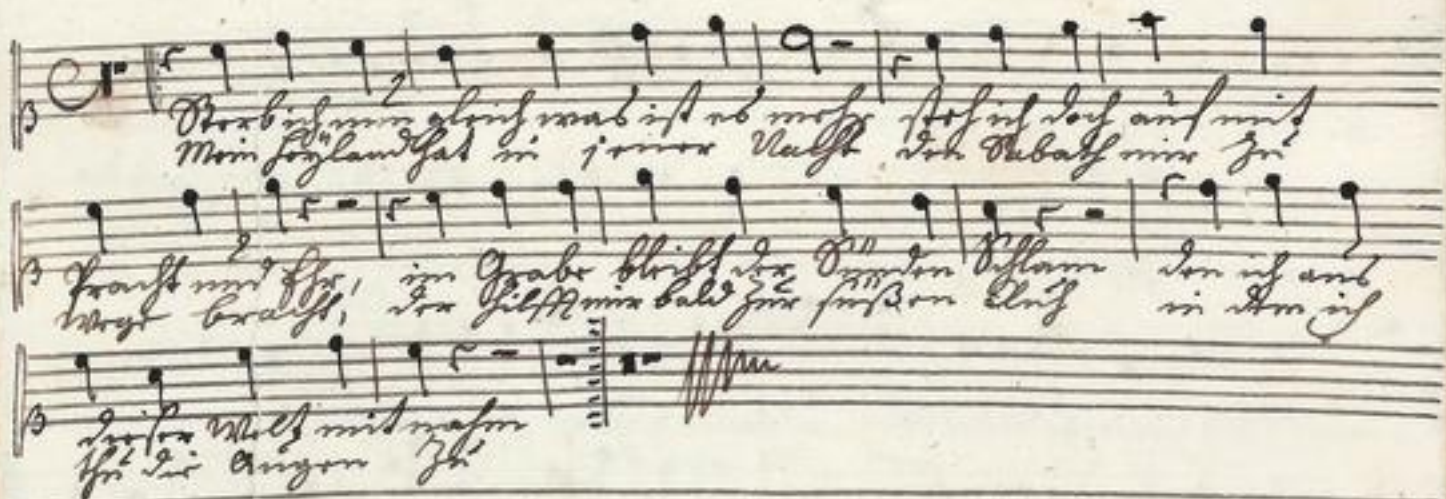 Sterb ich nun gleich was ist es mehr steh ich doch auf mit
Mein Heyland hat in jener Nacht den Sabath mir zu
Pracht und Ehr, im Grabe bleibt der Sünden Schlam den ich aus
wege bracht, der hilfft mir bald zur süßen Ruh in dem ich
dieser Welt mit nahm
thu die Augen zu